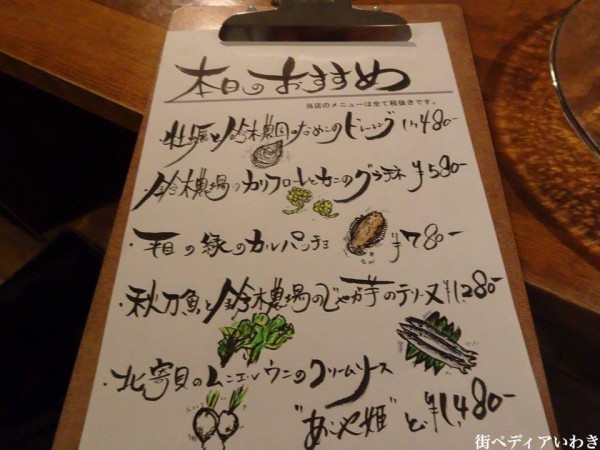 本日のおすすめ
当店のメニューは全て税抜きです。
・牡蠣と鈴木農園のなめこのドレッシング ¥480-
・鈴木農場のカリフローレとカニのグラチネ ¥580-
・平目の縁のカルパッチョ ¥780-
・秋刀魚と鈴木農場のじゃが芋のテリーヌ ¥1,280-
・北寄貝のムニエル ウニのクリームソース
"あこや姫"と ¥1,480-
街ペディアいわき